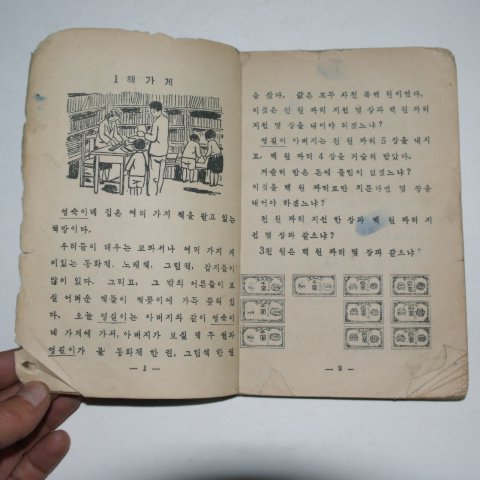 1 책 가 게
영숙이네 집은 여러 가지 책을 팔고 있는
책방이다.
우리들이 배우는 교과서나 여러 가지 재
미있는 동화책, 노래책, 그림책, 잡지들이
많이 있다. 그리고, 그 밖의 어른들이 보
실 어려운 책들이 책꽂이에 가득 꽂혀 있
다. 오늘 영길이는 아버지와 같이 영숙이
네 가게에 가서, 아버지가 보실 책 두 권과
영길이가 볼 동화책 한 권, 그림책 한 권
— 1 —
을 샀다. 값은 모두 사천 륙백 원이였다.
이것은 천 원 짜리 지전 몇 장과 백 원 짜리
지전 몇 장을 내어야 되겠느냐?
영길이 아버지는 천 원 짜리 5 장을 내시
고, 백 원 짜리 4 장을 거슬러 받았다.
거슬러 받은 돈에 틀림이 없겠느냐?
이것을 백 원 짜리로만 치룬다면 몇 장을
내어야 하겠느냐?
천 원 짜리 지전 한 장과 백 원 짜리 지
전 몇 장과 같으냐?
3천 원은 백 원 짜리 몇 장과 같으냐?
— 2 —